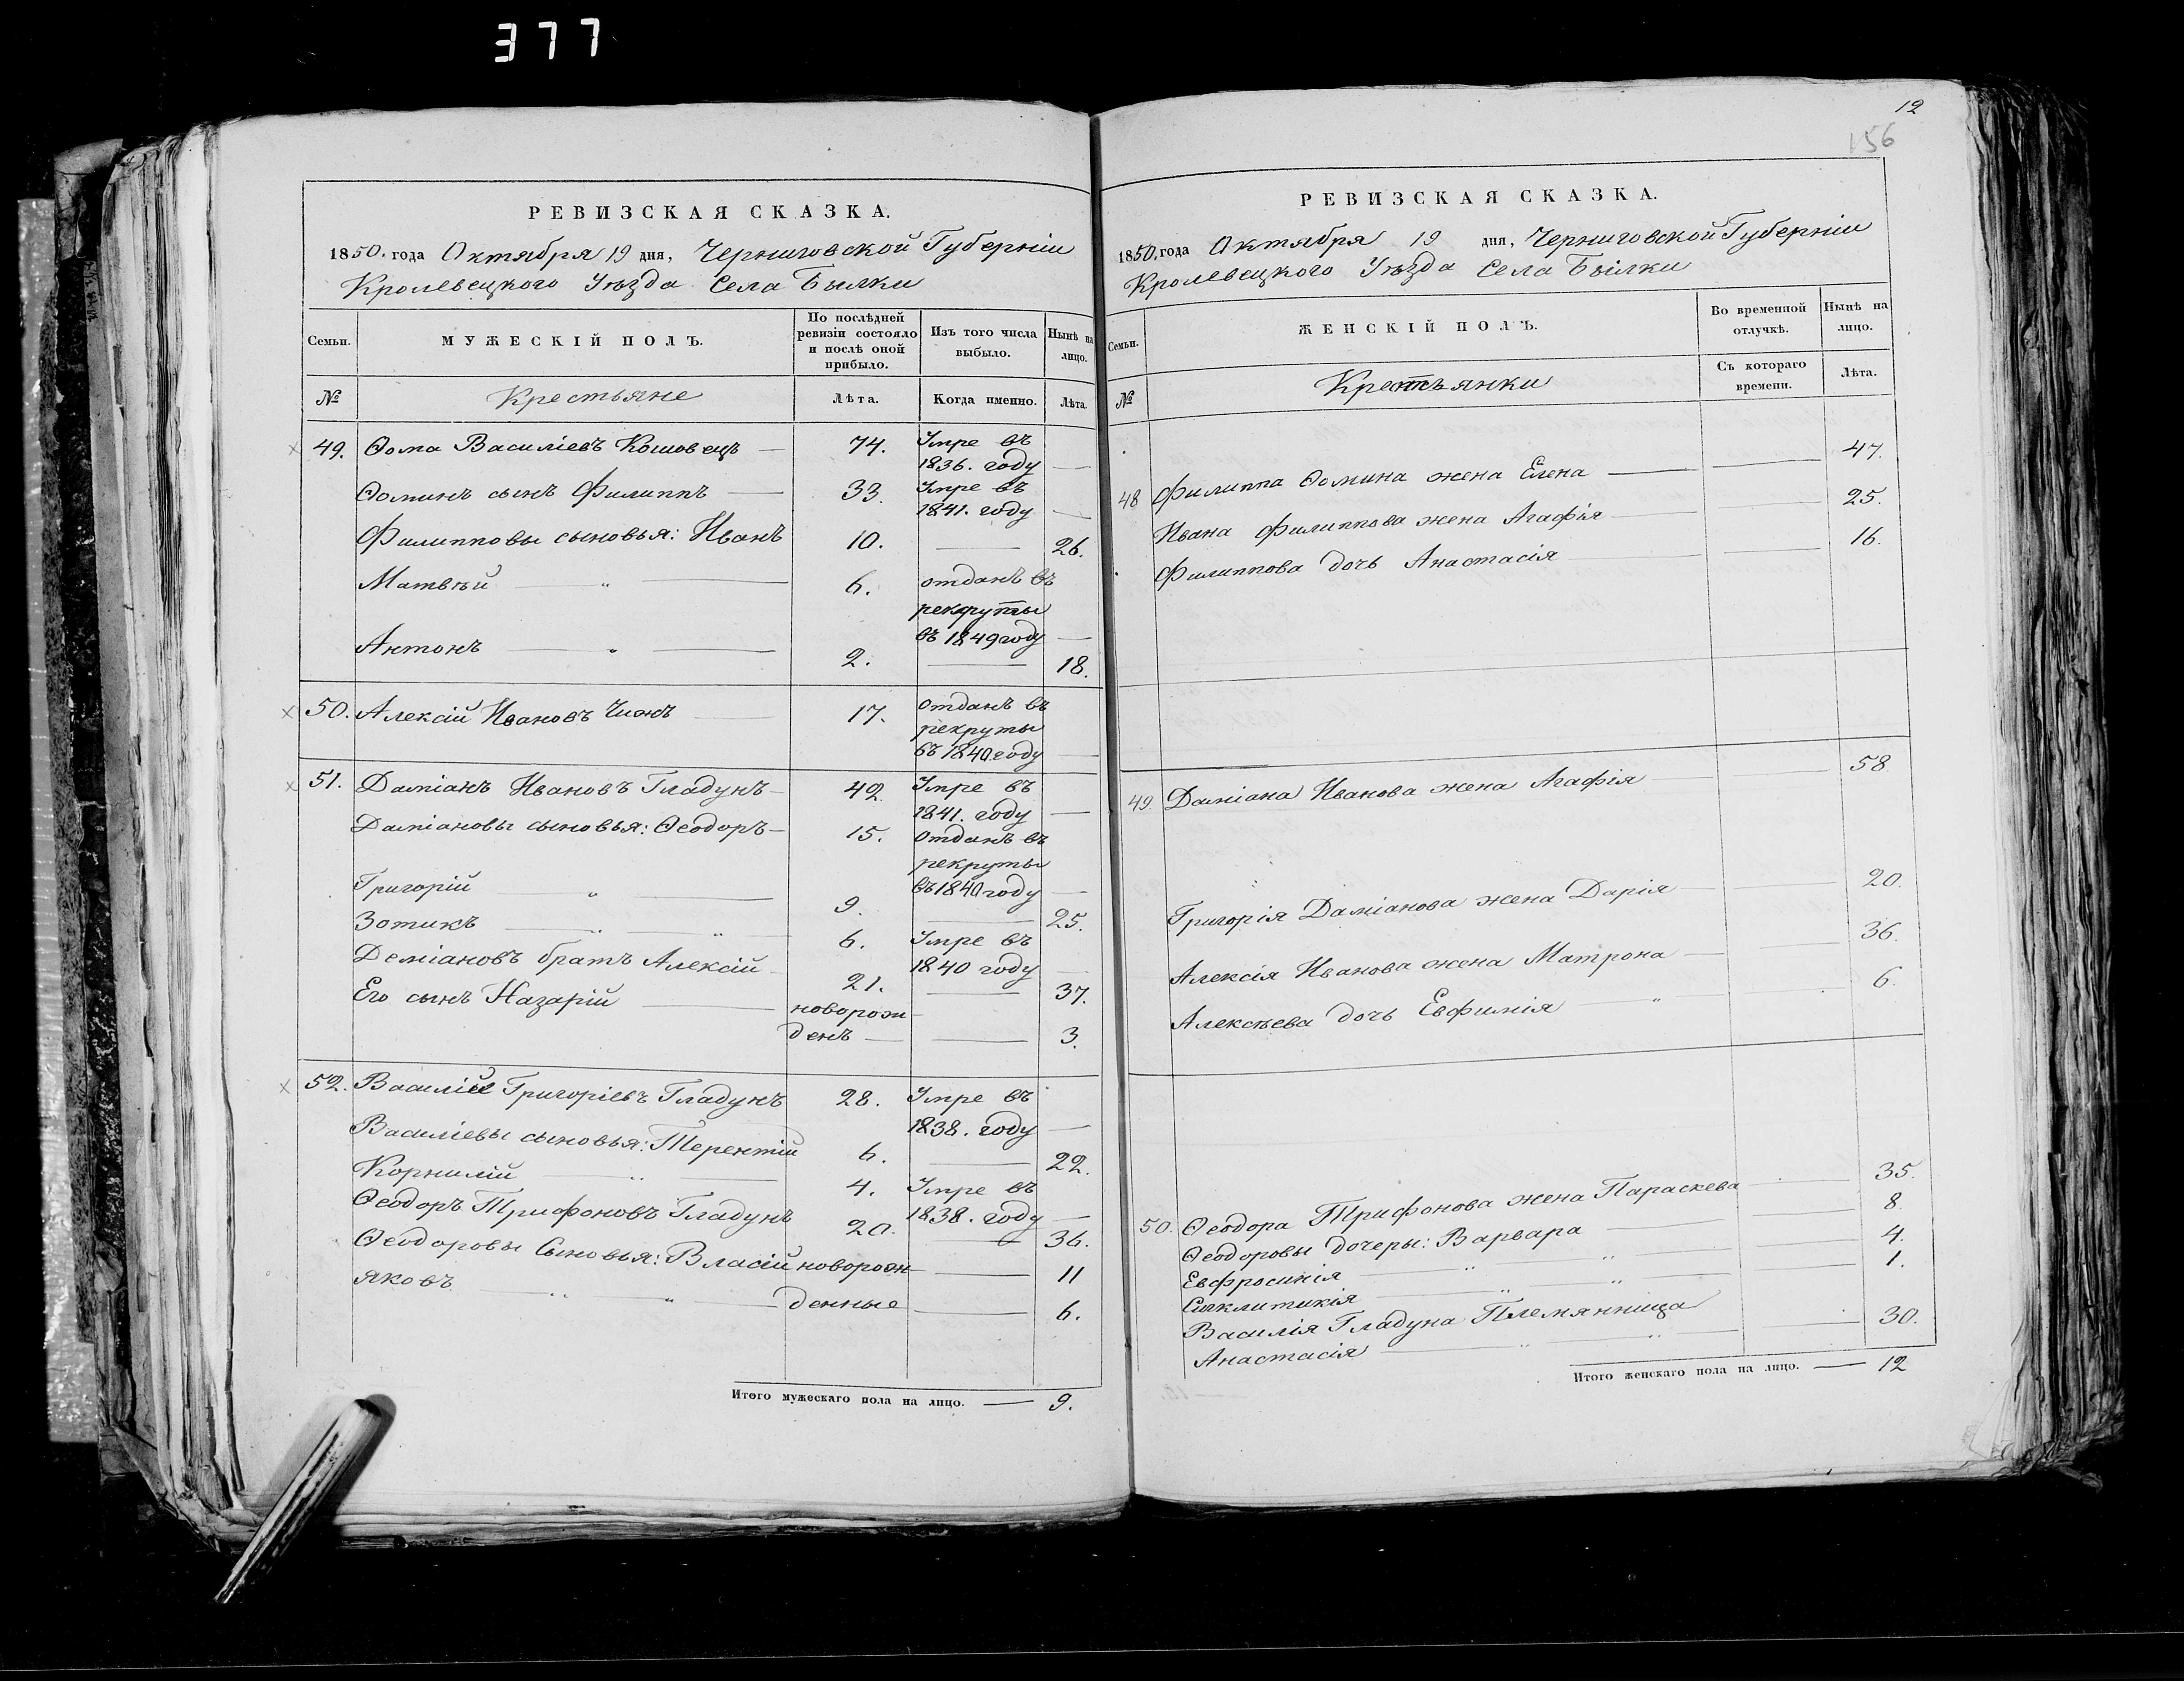 377
12
156
РЕВИЗСКАЯ СКАЗКА.
1850. года Октября 19 дня, Черниговской Губерніи
Кролевецкого Уѣзда Села Былки
Семьи.
МУЖЕСКІЙ ПОЛЪ.
По послѣдней
ревизіи состояло
и послѣ оной
прибыло.
Изъ того числа
выбыло.
Нынѣ на
лицо.
№
Крестьяне
Лѣта.
Когда именно.
Лѣта.
49. Ѳома Василіевъ Кошовецъ — 74. Умре въ
1836. году —
Ѳоминъ сынъ Филиппъ — 33. Умре въ
1841. году —
Филипповы сыновья: Иванъ 10. — 26.
Матвѣй „ — 6. отданъ въ
рекруты
въ 1849 году —
Антонъ — „ — 2. — 18.
50. Алексій Ивановъ — 17. отданъ въ
рекруты
въ 1840 году —
51. Даміанъ Ивановъ Гладунъ — 42. Умре въ
1841. году —
Даміановы сыновья: Ѳеодоръ — 15. Отданъ въ
рекруты
въ 1840 году —
Григорій — „ — 9. — 25.
Зотикъ — „ — „ — 6. Умре въ
1840 году —
Деміановъ братъ Алексій 21. — 37.
Его сынъ Назарій — новорож
денъ — — 3.
52. Василій Григоріевъ Гладунъ 28. Умре въ
1838. году —
Василіевы сыновья: Терентій 6. — 22.
Корнилій — „ — 4. Умре въ
1838. году —
Ѳеодоръ Трифоновъ Гладунъ 20. — 36.
Ѳеодоровы Сыновья: Власій новорож — 11
Яковъ — „ „ — денные — 6.
Итого мужескаго пола на лицо. — 9.
РЕВИЗСКАЯ СКАЗКА.
1850, года Октября 19 дня, Черниговской Губерніи
Кролевецкого Уѣзда Села Былки
Семьи.
ЖЕНСКІЙ ПОЛЪ.
Во временной
отлучкѣ.
Нынѣ на
лицо.
№
Крестьянки
Съ котораго
времени.
Лѣта.
48 Филиппа Ѳомина жена Елена — — 47.
Ивана Филиппова жена Агафія — — 25.
Филиппова дочь Анастасія — — 16.
49. Даміана Иванова жена Агафія — — 58
Григорія Даміанова жена Дарія — — 20.
Алексія Иванова жена Матрона — — 36.
Алексѣева дочь Евфимія — „ — 6.
50. Ѳеодора Трифонова жена Параскева — 35.
Ѳеодоровы дочеры: Варвара — — 8.
Евфросинія — „ „ — 4.
Синклитикія — „ „ — 1.
Василія Гладуна Племянница
Анастасія — „ „ — 30.
Итого женскаго пола на лицо. — 12